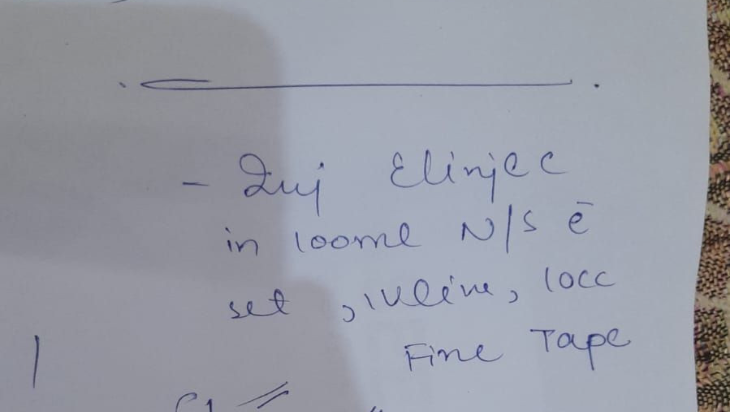 - Inj Elinjec
in 100ml N/S c̄
set, IV line, 10cc
Fine Tape